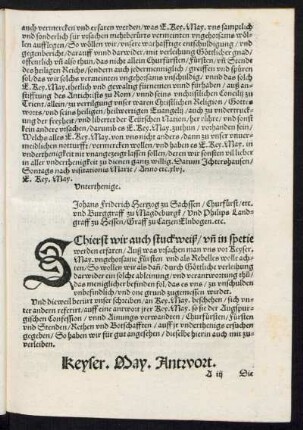 auch vermercken vnd erfaren werden / was E. Key. May. vns sampslich
vnd sonderlich für vrsachen mehrberürts vermeinten vngehorsams wöl
len aufflegen / So wöllen wir / vnser warhafftige entschuldigung / vnd
gegenbericht / darauff vnnd darwider / mit verleihung Götlicher gnad /
offentlich vñ also thun / das nicht allein Churfürsten / fürsten / vñ Stende
des heiligen Reichs / sondern auch jedermenniglich / greiffen vnd spüren
sol das wir solchs vermeinten vngehorsams vnschuldig / vnnd das solch
E. Key. May. thetlich vnd gewaltig fürnemen vnd fürhaben / auch an-
stifften des Antichrists zu Rom / vnd seins vnchristlichen Concilij zu
Trient / allein / zu vertilgung vnser waren Christlichen Religion / Gotts
worts / vnd seins heiligen / heilwertigen Euangelij / auch zu vnderdruck-
ung der freiheit / vnd libertet der Teütschen Nation / her rühre / vnd sonst
kein andere vrsachen / darumb es E. Key. May. zuthun / vorhanden sein /
Welchs alles E. Key. May. von vns nicht anders / dann zu vnser vnuer-
meidlichen notturfft / vermercken wöllen / vnd so es vmb E. Key. May. in
vnderthenigkeit nit vnangezeigt lassen sollen / deren wir sonsten vil lieber
in aller vnderthenigkeit zu dienen gantz willig. Datum Ichtershausen /
Sontags nach visitationis Marie / Anno etc. xlvj.
E. Key. May.
Vnterthenige.
Johans Friderich Hertzog zu Sachssen / Churfürst / etc.
vnd Burggraff zu Magdeburgk / Vnd Philips Land-
graff zu Hessen / Graff zu Catzen Elnbogen. etc.
SChierst wir auch stuckweiß / vñ in specie
werden erfaren / Auß was vrsachen man vns vor Keyser.
May. vngehorsame Fürsten vnd als Rebelles wolle ach-
ten / So wöllen wir als dañ / durch Götliche verleihung
darwider ein solche ableinung / vnd verantwortung thũ /
das menniglich befinden sol / das es vns / zu vnschulden
vnbefindlich vnd one grund zugemessen werde.
Vnd dieweil beriert vnser schreiben / an Key. May. beschehen / sich vn-
ter andern referirt / auff eine antwort jrer Key. May. so sie der Augspur-
gischen Confession / vnnd Ainungs verwandten / Churfürsten / Fürsten
vnd Stenden / Rethen vnd Botschafften / auff jr vnderthenigs ersuchen
gegeben / So haben wir für gut angesehen / dieselben hierin auch mit zu-
verleiben.
Keyser. May. Antwort.
A iij Die